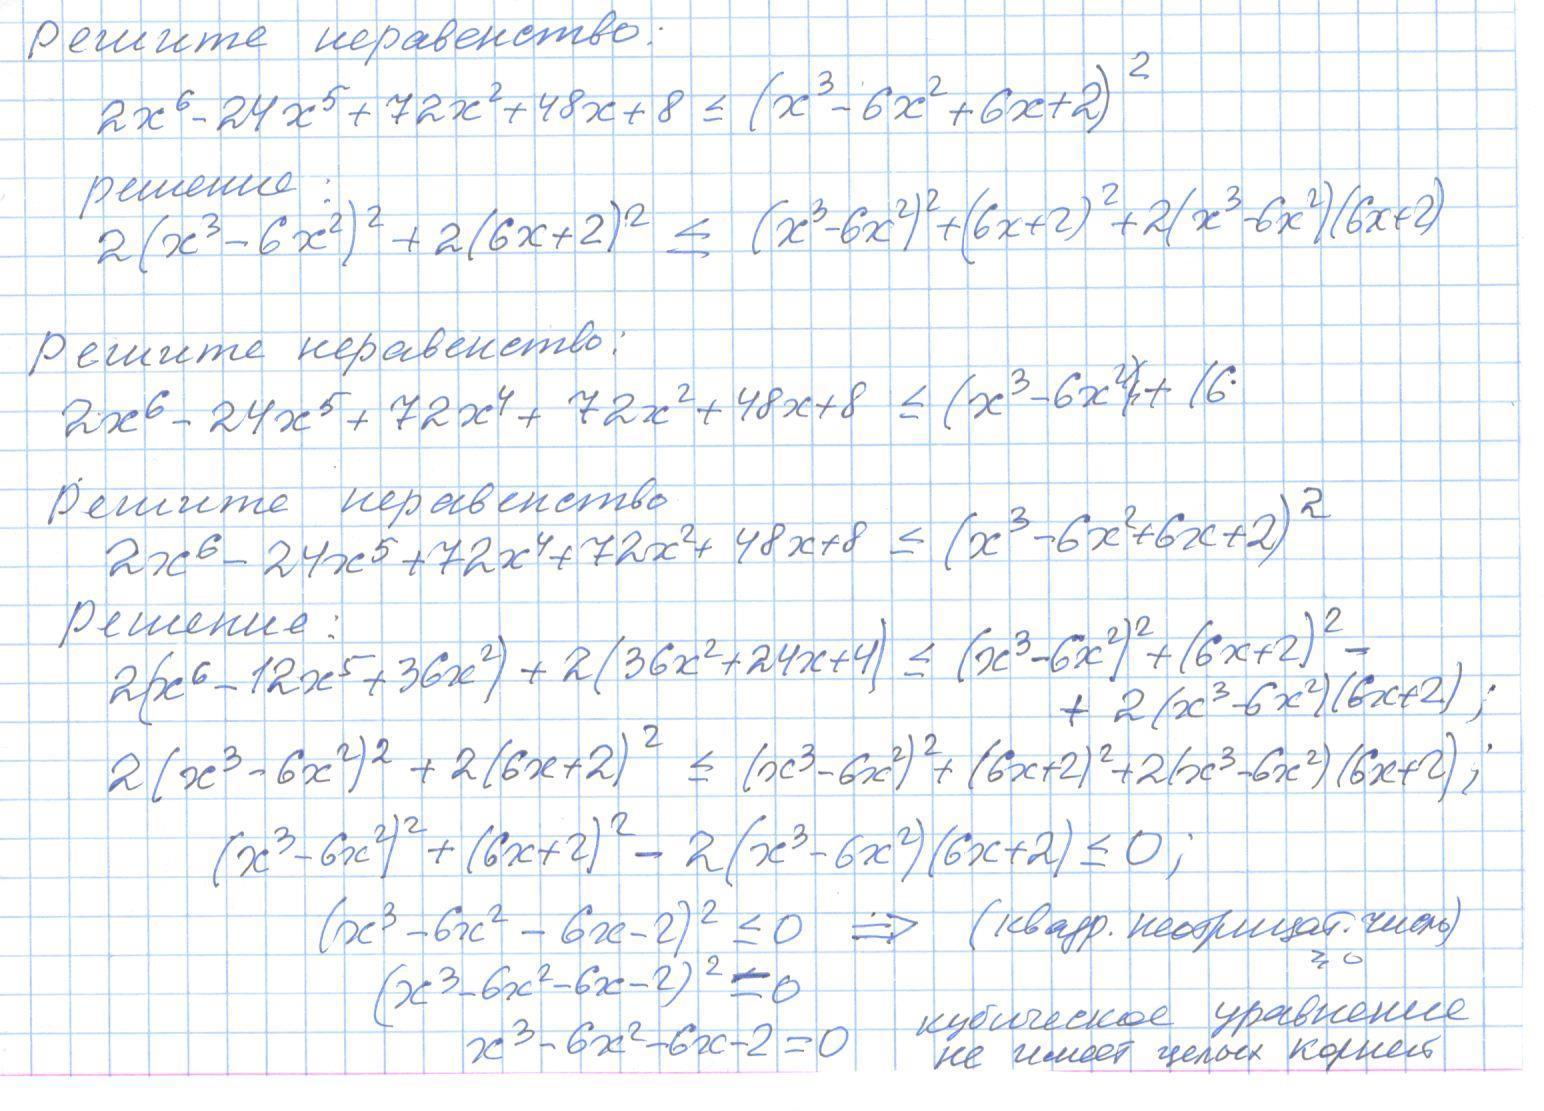 Решите неравенство:
2x⁶ - 24x⁵ + 72x² + 48x + 8 ≤ (x³ - 6x² + 6x + 2)²
решение:
2(x³ - 6x²)² + 2(6x + 2)² ≤ (x³ - 6x²)² + (6x + 2)² + 2(x³ - 6x²)(6x + 2)
Решите неравенство:
2x⁶ - 24x⁵ + 72x⁴ + 72x² + 48x + 8 ≤ (x³ - 6x²) + (6
Решите неравенство
2x⁶ - 24x⁵ + 72x⁴ + 72x² + 48x + 8 ≤ (x³ - 6x² + 6x + 2)²
Решение:
2(x⁶ - 12x⁵ + 36x²) + 2(36x² + 24x + 4) ≤ (x³ - 6x²)² + (6x + 2)² -
+ 2(x³ - 6x²)(6x + 2);
2(x³ - 6x²)² + 2(6x + 2)² ≤ (x³ - 6x²)² + (6x + 2)² + 2(x³ - 6x²)(6x + 2);
(x³ - 6x²)² + (6x + 2)² - 2(x³ - 6x²)(6x + 2) ≤ 0;
(x³ - 6x² - 6x - 2)² ≤ 0 ⇒ (квадр. неотрицат. число)
≥ 0
(x³ - 6x² - 6x - 2)² = 0
x³ - 6x² - 6x - 2 = 0 кубическое уравнение
не имеет целых корней